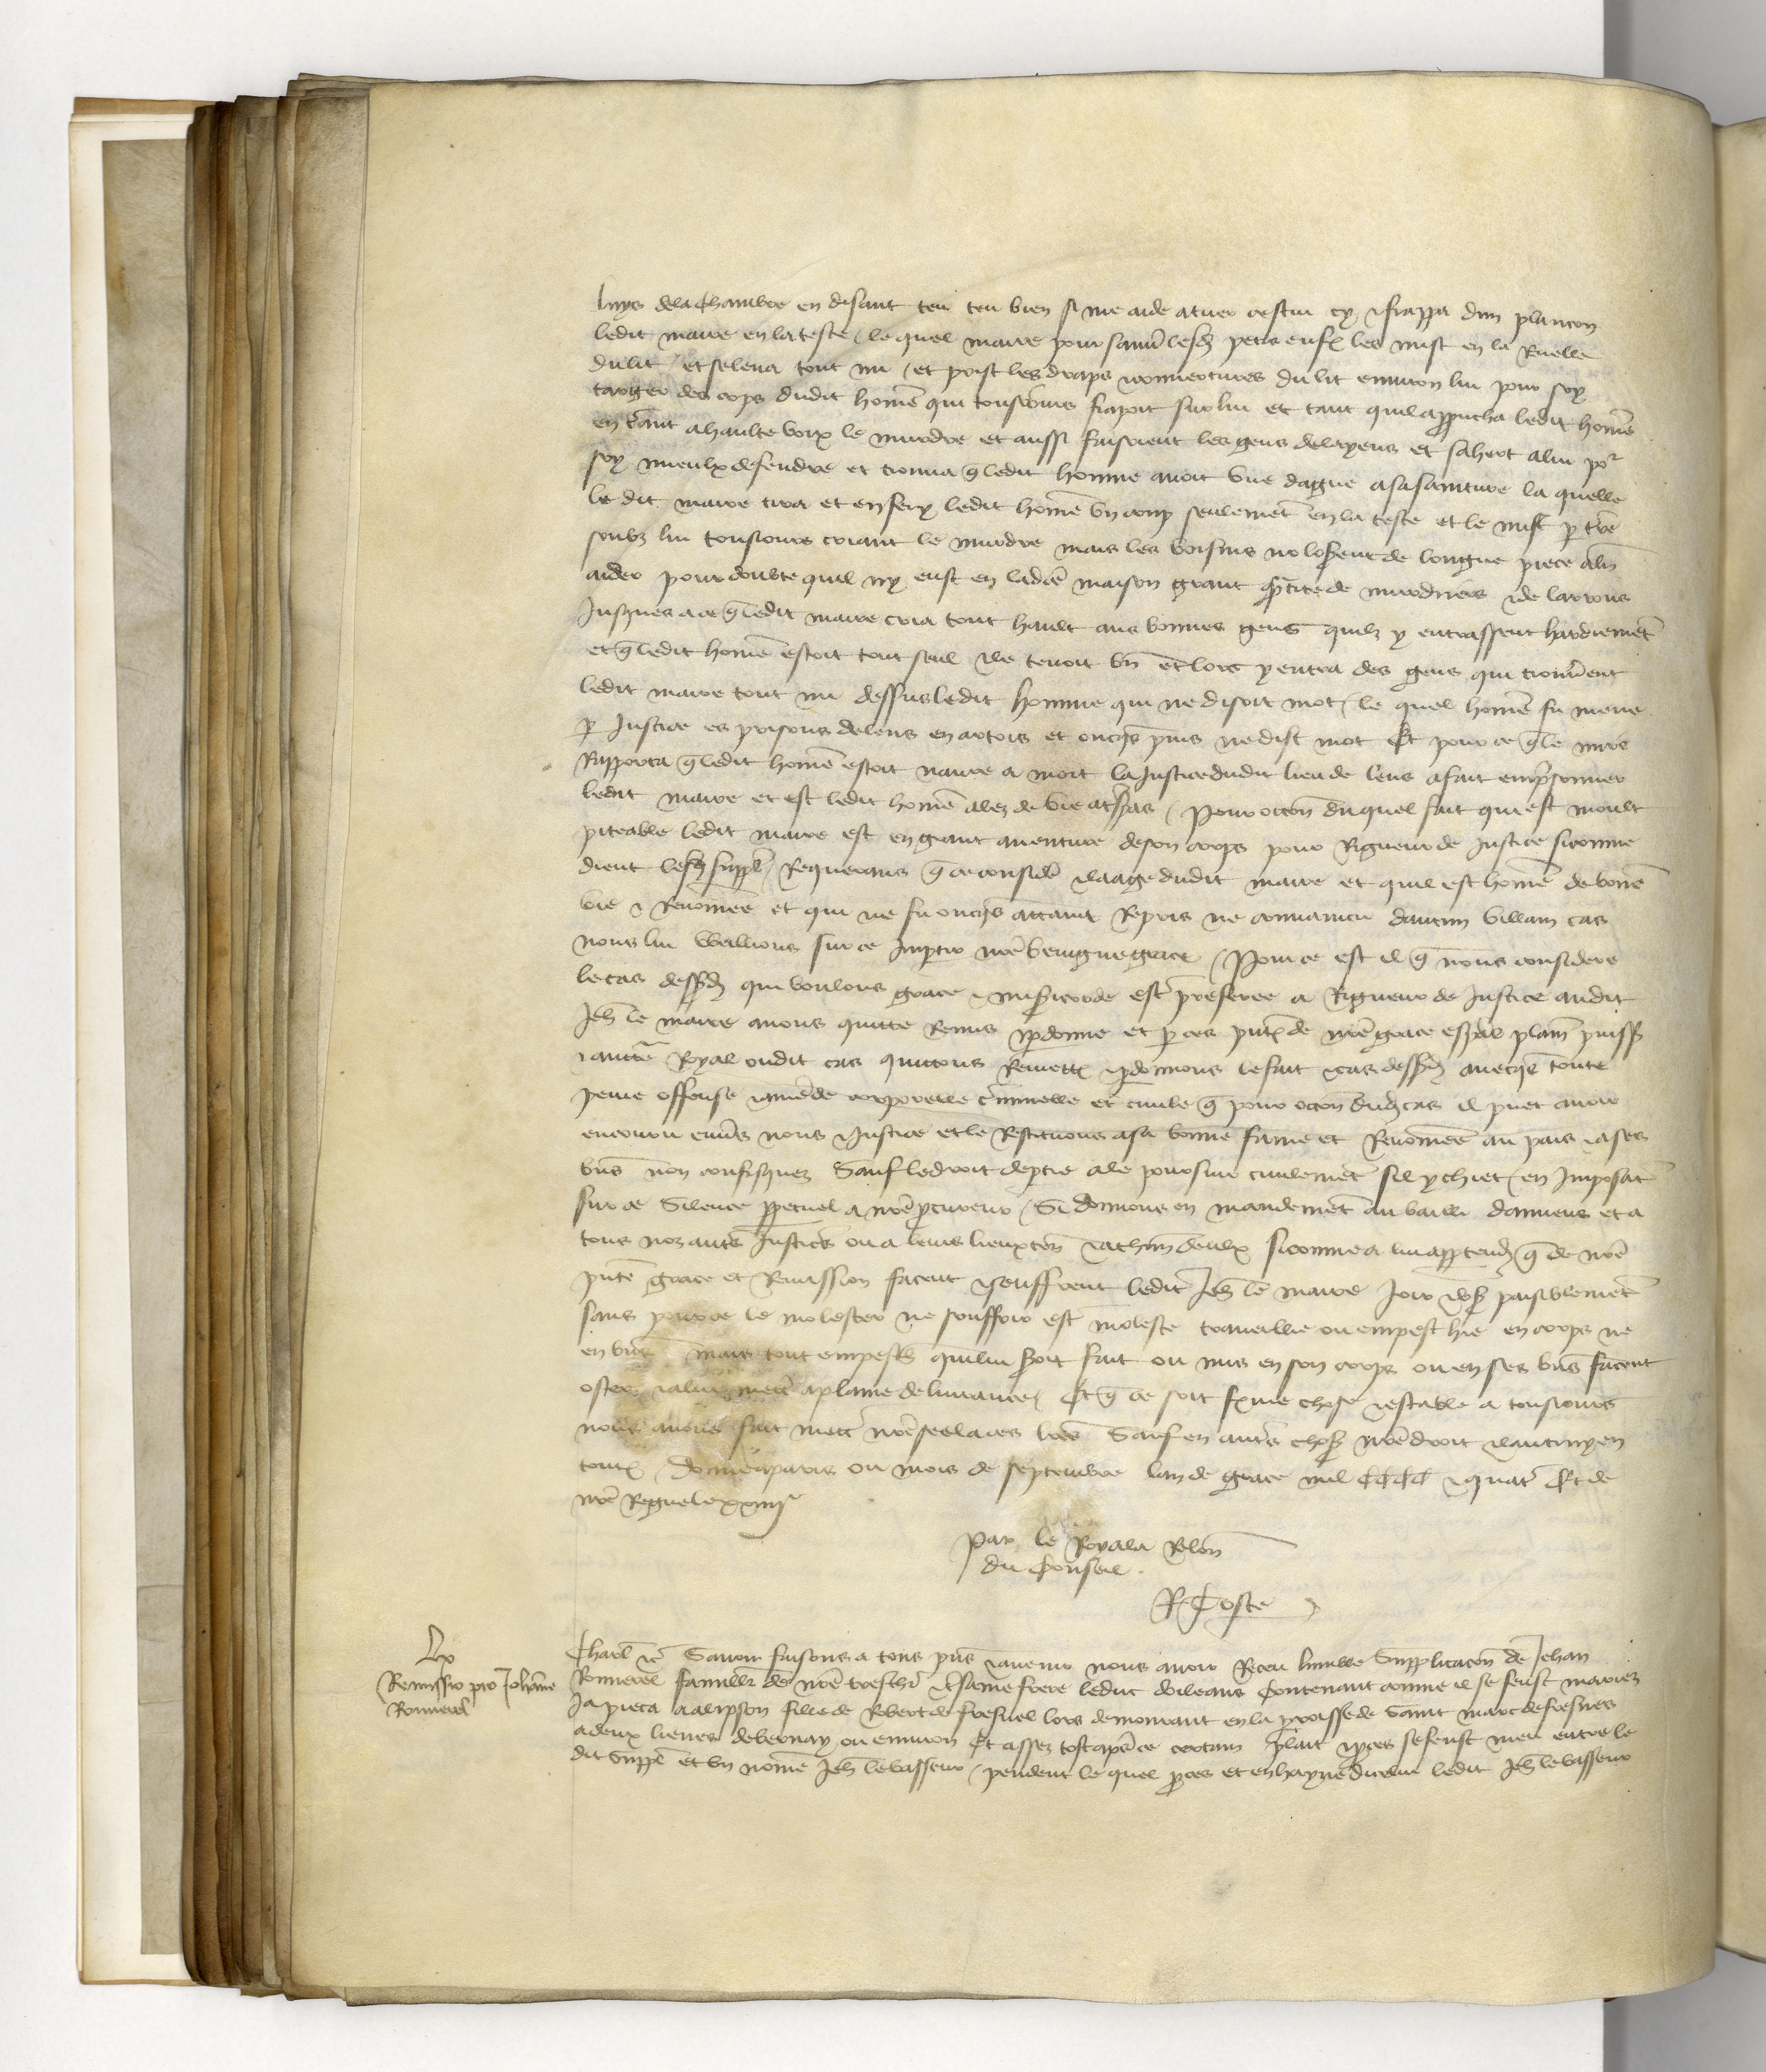 luys de la chambre en disant ten ten bien si me aide a tuer cestui cy & frappa dun plancon
ledit maire en la teste / le quel maire pour sauuer lesd petis enfs les mist en la Ruelle
du lit / et se leua tout nu / et prist les draps & couuertures du lit enuiron lui pour soy
targer des cops dudit home qui tousiours frapoit sur lui et tant quil approucha ledit home
en criant a haulte voix le murdre et aussi faisoient les gens de leyens et sahert a lui por
soy mieulx defendre et trouua q ledit homme auoit vne dague a sa sainture la quelle
le dit maire tira et en fery ledit home vn coup seulemet en la teste et le mist p tre
soubz lui tousiours criant le murdre mais les voisins ne loserent de longue piece aler
aider pour doubte quil ny eust en lad maison grant qtite de murdriers & de larrons
Jusques a ce q ledit maire cria tout hault aus bonnes gens quilz y entrassent hardiemet
et q ledit home estoit tout seul & le tenoit bn et lors y entra des gens qui trouuerent
ledit maire tout nu dessus ledit homme qui ne disoit mot / le quel home fu mene
p Justice es prisons de lens en artois et oncqs puis ne dist mot Et pour ce q le mire
Rapporta q ledit home estoit naure a mort la Justice dudit lieu de lens a fait emprisonner
ledit maire et est ledit home alez de vie a trespas / Pour occon duquel fait qui est moult
piteable ledit maire est en grant auenture de son corps pour Rigueur de Justice si comme
dient lesd suppl / Requerans q ce considere & laage dudit maire et quil est home de bone
vie & Renomee et qui ne fu oncqs attaint Repris ne conuaincu daucun villain cas
nous lui veillions sur ce Impartir nre benigne grace / Pour ce est il q nous considere
le cas dessusd qui voulons grace & misericorde estre preferee a Rigueur de Justice audit
Jeh le maire auons quitte Remis & pdonne et p ces pntes de nre grace espal plain puiss
& aucte Royal oudit cas quittons Remettos & pdonnons le fait & cas dessusd auecqs toute
peine offense & amende corporelle criminelle et ciuile q pour occon dud cas il puet auoir
encouru enuers nous & Justice et le Restituons a sa bonne fame et Renomee au pais & a ses
bns non confisquez Sauf le droit de ptie a le poursuir ciuilemet sil y chiet / en Imposat
sur ce Silence ppetuel a nre pcureur / Si donnons en mandement au bailli damiens et a
tous noz autres Justices ou a leurs lieuxten & a chun deulx si comme a lui apptendra q de nre
pnte grace et Remission facent & seuffrent ledit Jeh le maire Joir & vser paisiblemet
sans pour ce le molester ne souffrir estre moleste trauaillie ou empeschie en corps ne
en bns mais tout empesch qui lui seroit fait ou mis en son corps ou en ses bns facent
oster & a lui mettre a plaine deliurance / Et q ce soit ferme chose & estable a tousiours
nous auons fait mettre nre seel a ces lres Sauf en autres choses nre droit & lautruy en
toutes / Donne a paris ou mois de septembre lan de grace mil CCCC & quatre Et de
nre Regne le xxiiiie
Par le Roy a la Relon
du Conseil
R Coste
Lx
Remissio pro Johanne
Rommerel
Charl &c Sauoir faisons a tous pns & auenir nous auoir Receu lumble Supplicacon de Jehan
Rommerel familler de nre treschr & tsame frere le duc dorleans Contenant comme il se feust mariez
Ja pieca a alipson fille de Robert de fresnel lors demourant en la proisse de Saint marc de fresnes
a deux lieues de bernay ou enuiron Et assez tost apres ce certain plait & pces se feust meu entre le
dit Suppl et vn nome Jeh le vasseur / pendent le quel pces et en hayne dicelui ledit Jeh le vasseur